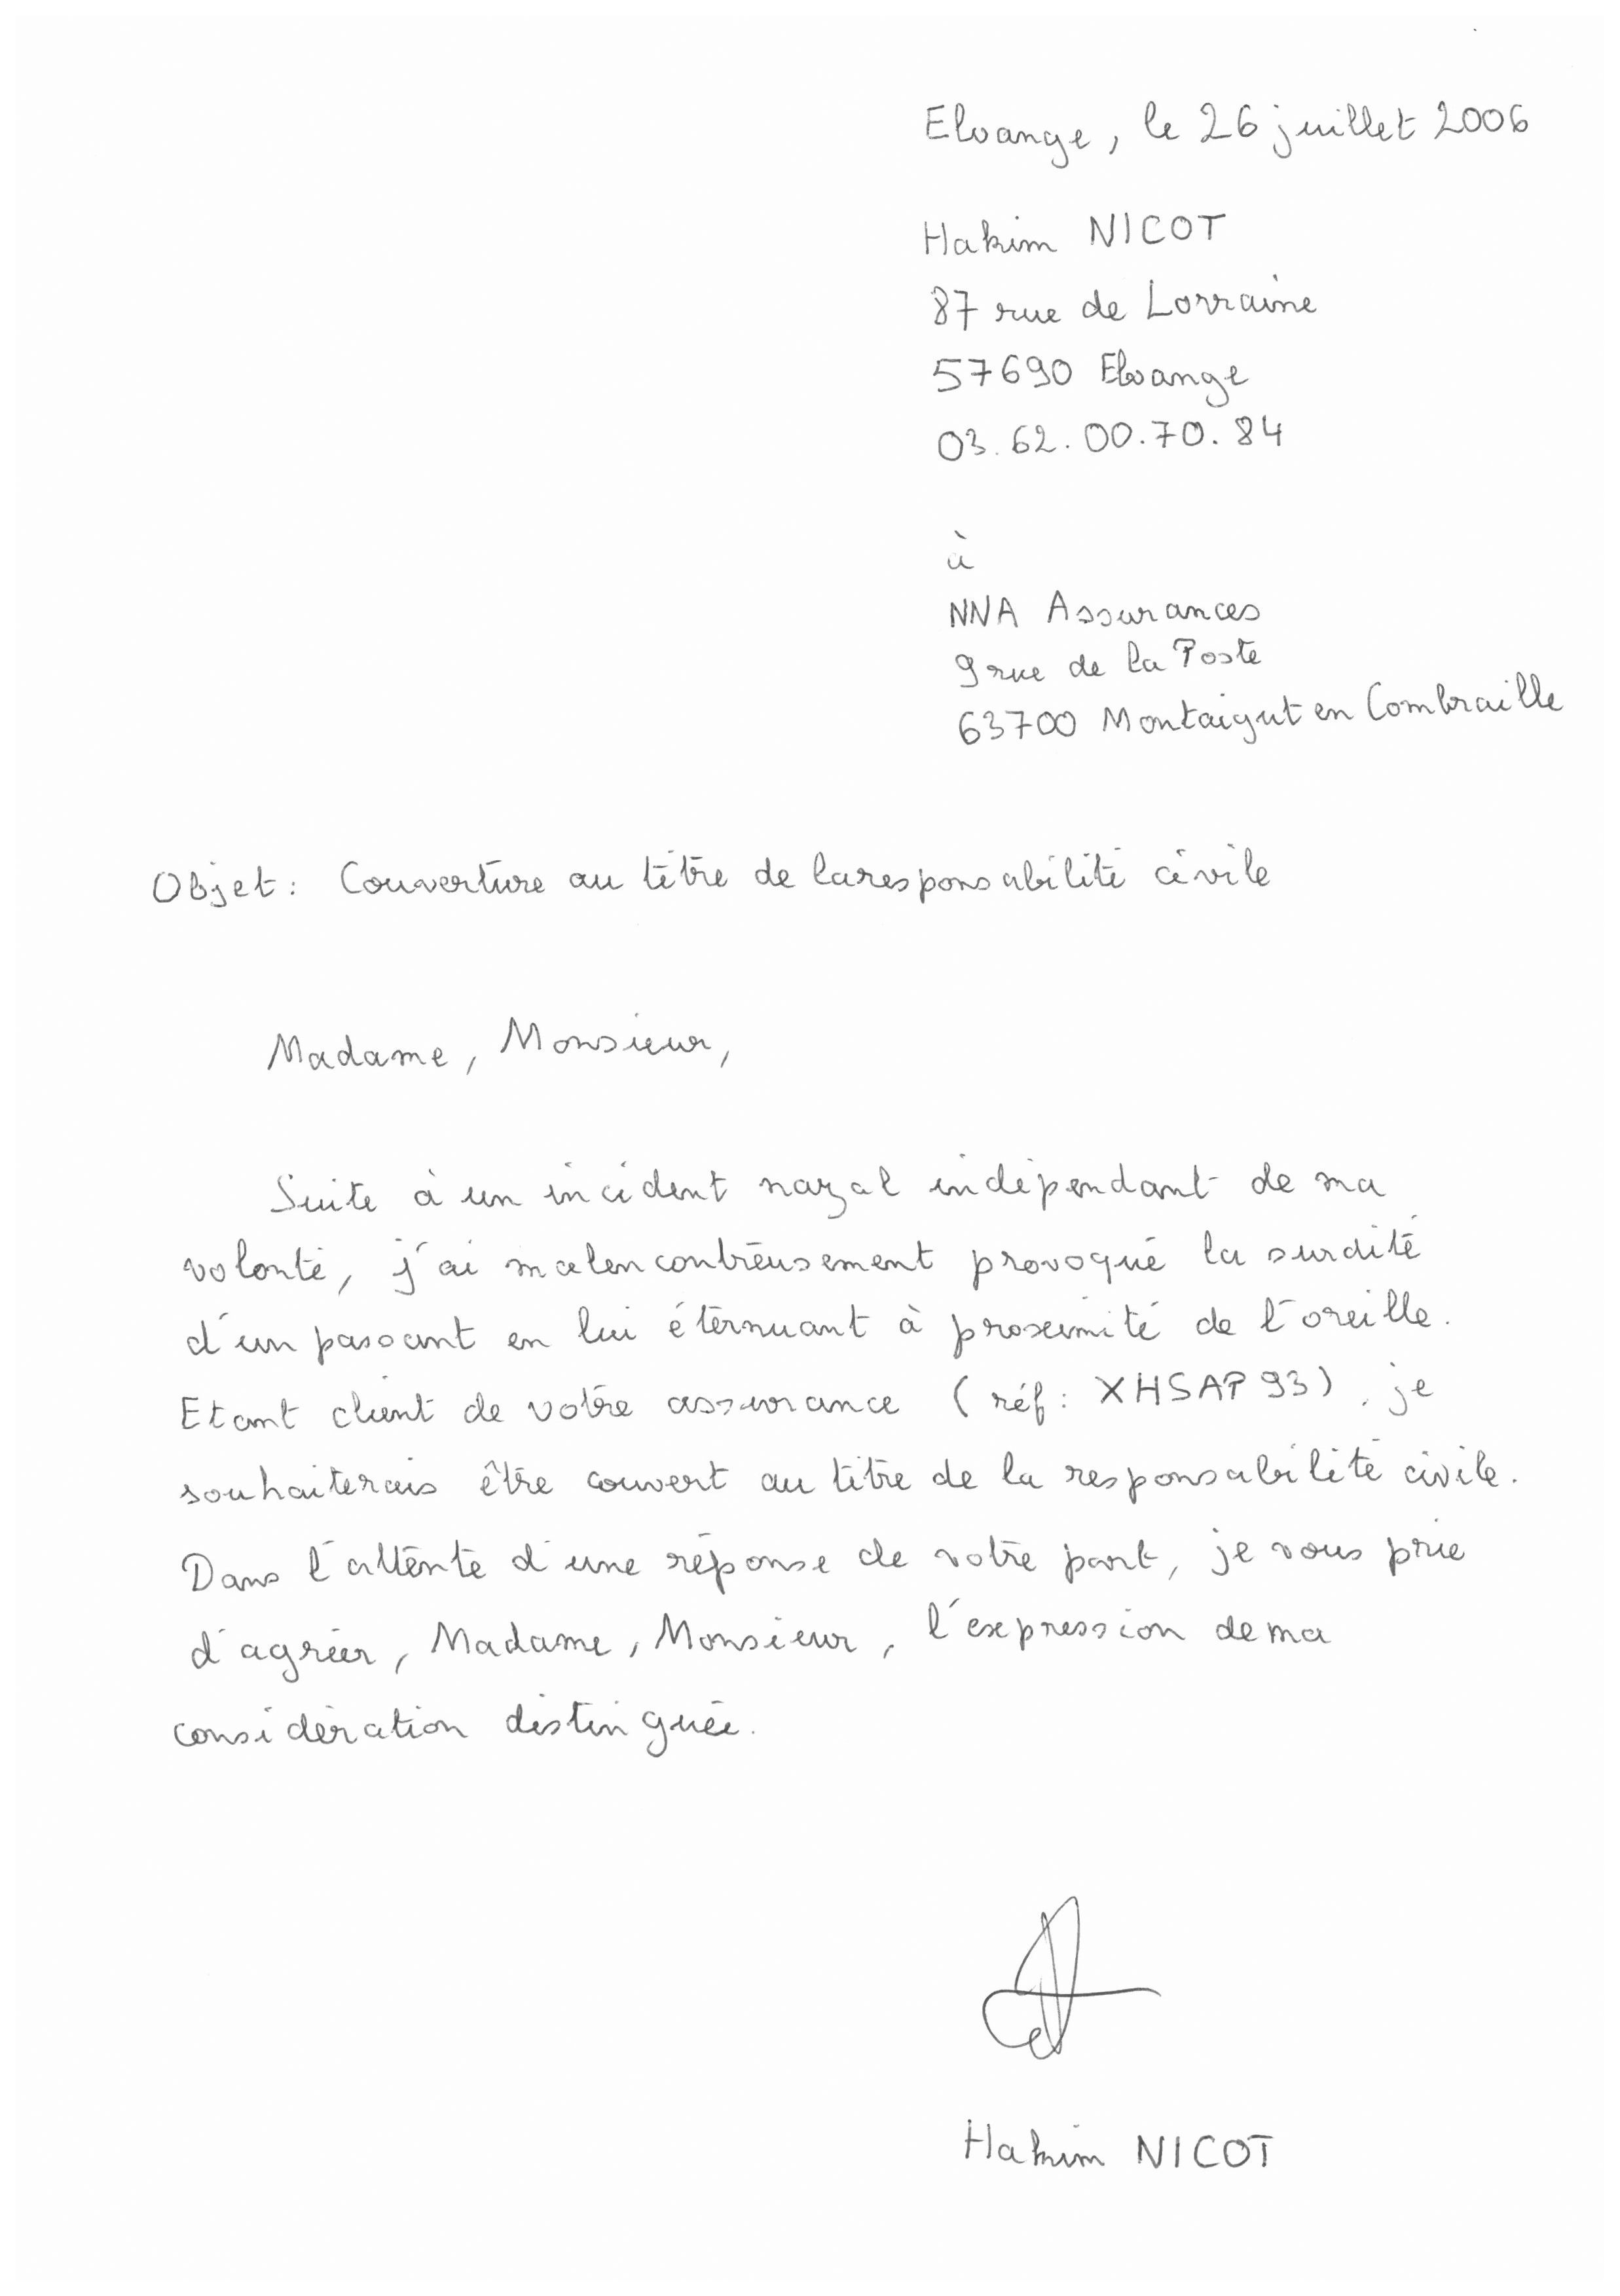 Elvange, le 26 juillet 2006
Hakim NICOT
87 rue de Lorraine
57690 Elvange
03.62.00.70.84
à
NNA Assurances
9 rue de la Poste
63700 Montaigut en Combraille
Objet : Couverture au titre de la responsabilité civile
Madame, Monsieur,
Suite à un incident nazal indépendant de ma
volonté, j'ai malencontreusement provoqué la surdité
d'un passant en lui éternuant à proximité de l'oreille.
Etant client de votre assurance (réf : XHSAP93), je
souhaiterais être couvert au titre de la responsabilité civile.
Dans l'attente d'une réponse de votre part, je vous prie
d'agréer, Madame, Monsieur, l'expression de ma
considération distinguée.
Hakim NICOT